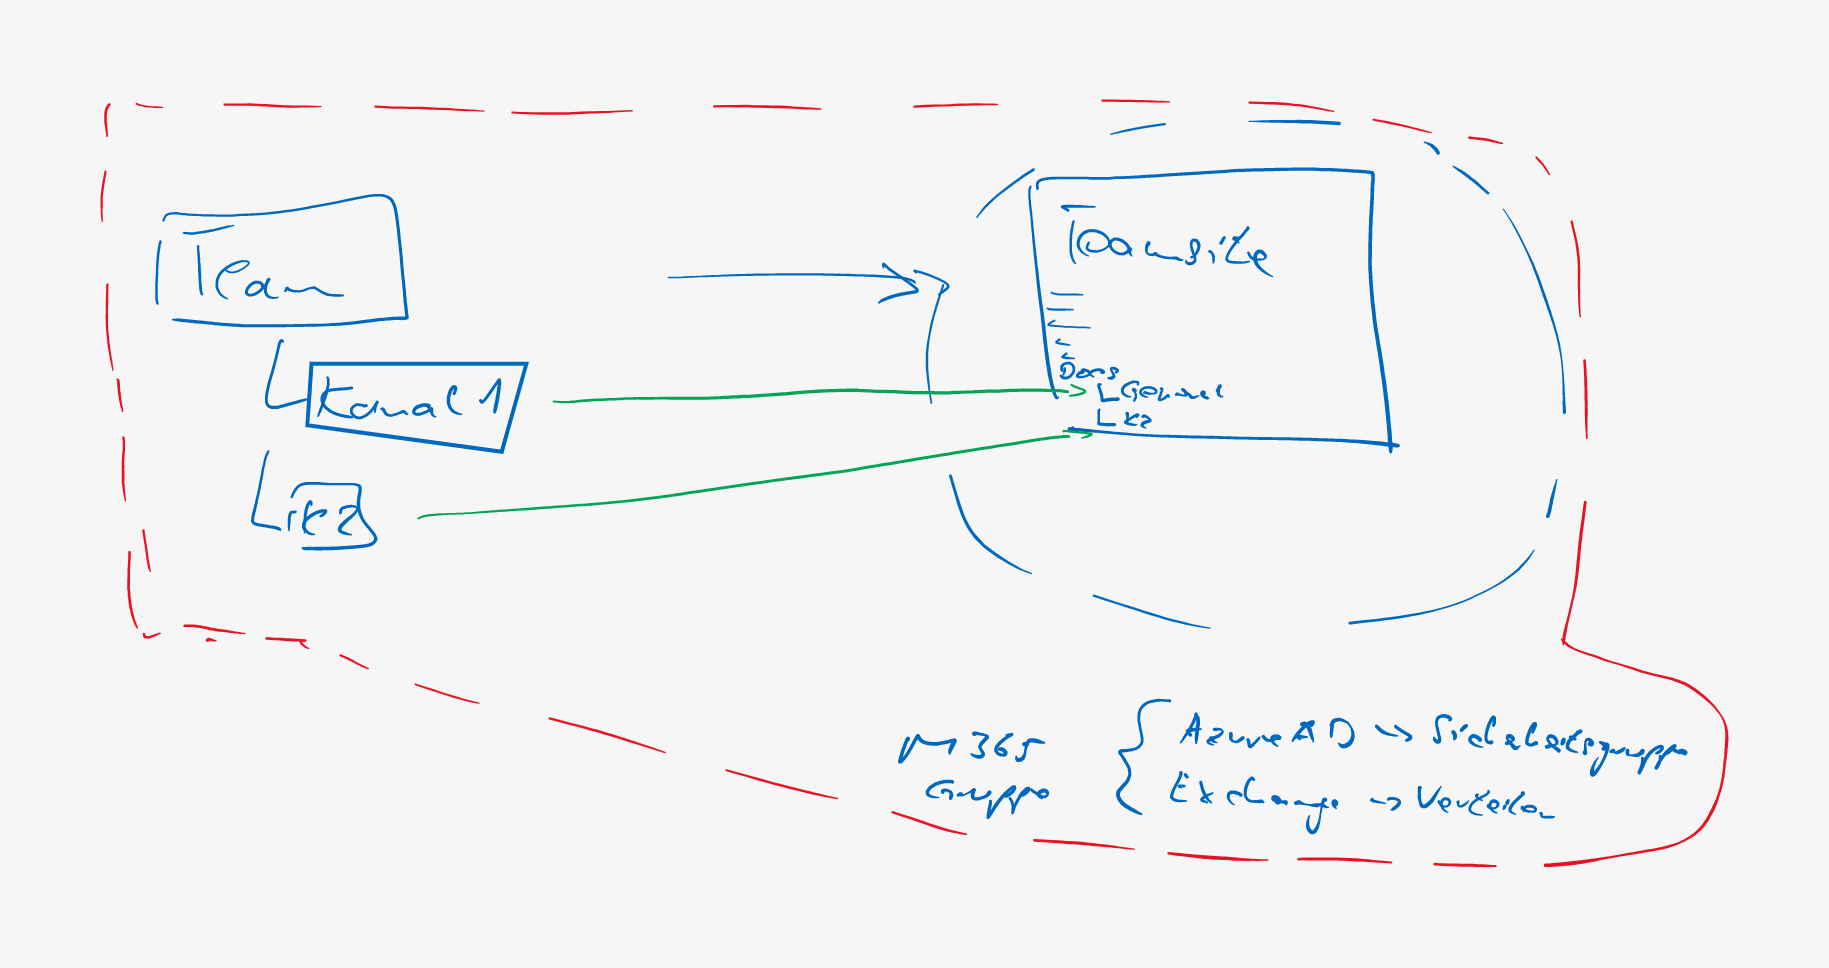 Team
Kanal 1
K2
Teamsite
Docs
General
K2
M365
Gruppe
Azure AD -> Sicherheitsgruppe
Exchange -> Verteiler